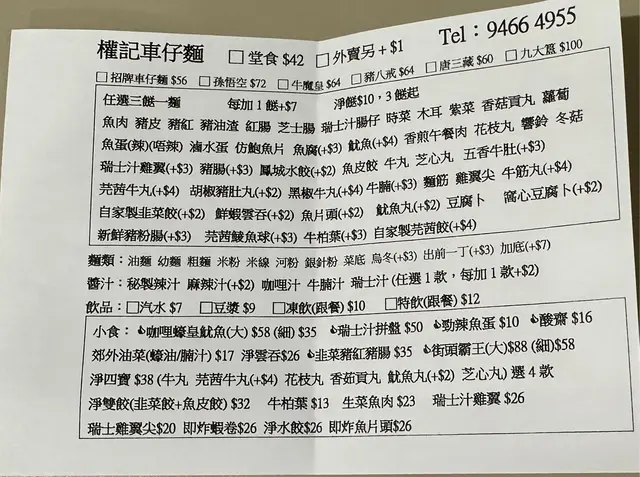 權記車仔麵 □堂食 $42 □外賣另+$1 Tel：9466 4955
□招牌車仔麵 $56 □孫悟空 $72 □牛魔皇 $64 □豬八戒 $64 □唐三藏 $60 □九大簋 $100
任選三餸一麵 每加1餸+$7 淨餸$10，3餸起
魚肉 豬皮 豬紅 豬油渣 紅腸 芝士腸 瑞士汁腸仔 時菜 木耳 紫菜 香菇貢丸 蘿蔔
魚蛋(辣)(唔辣) 滷水蛋 仿鮑魚片 魚腐(+$3) 魷魚(+$4) 香煎午餐肉 花枝丸 響鈴 冬菇
瑞士汁雞翼(+$3) 豬腸(+$3) 鳳城水餃(+$2) 魚皮餃 牛丸 芝心丸 五香牛肚(+$3)
芫茜牛丸(+$4) 胡椒豬肚丸(+$2) 黑椒牛丸(+$4) 牛腩(+$3) 麵筋 雞翼尖 牛筋丸(+$4)
自家製韭菜餃(+$2) 鮮蝦雲吞(+$2) 魚片頭(+$2) 魷魚丸(+$2) 豆腐卜 窩心豆腐卜(+$2)
新鮮豬粉腸(+$3) 芫茜鯪魚球(+$3) 牛柏葉(+$3) 自家製芫茜餃(+$4)
麵類：油麵 幼麵 粗麵 米粉 米線 河粉 銀針粉 菜底 烏冬(+$3) 出前一丁(+$3) 加底(+$7)
醬汁：秘製辣汁 麻辣汁(+$2) 咖哩汁 牛腩汁 瑞士汁(任選1款，每加1款+$2)
飲品：□汽水 $7 □豆漿 $9 □凍飲(跟餐) $10 □特飲(跟餐) $12
小食：👍咖哩蠔皇魷魚(大) $58 (細) $35 👍瑞士汁拼盤 $50 👍勁辣魚蛋 $10 👍酸齋 $16
郊外油菜(蠔油/腩汁) $17 淨雲吞$26 👍韭菜豬紅豬腸 $35 👍街頭霸王(大)$88 (細)$58
淨四寶 $38 (牛丸 芫茜牛丸(+$4) 花枝丸 香菇貢丸 魷魚丸(+$2) 芝心丸) 選4款
淨雙餃(韭菜餃+魚皮餃) $32 牛柏葉 $13 生菜魚肉 $23 瑞士汁雞翼 $26
瑞士雞翼尖$20 即炸蝦卷$26 淨水餃$26 即炸魚片頭$26